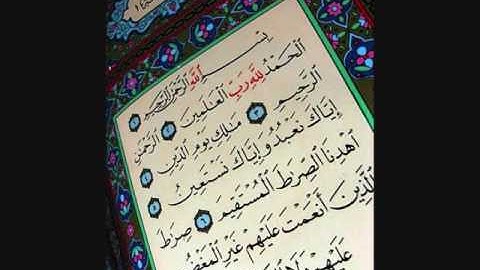 بِسْمِ ٱللَّهِ ٱلرَّحْمَٰنِ ٱلرَّحِيمِ ١
ٱلْحَمْدُ لِلَّهِ رَبِّ ٱلْعَٰلَمِينَ ٢ ٱلرَّحْمَٰنِ
ٱلرَّحِيمِ ٣ مَٰلِكِ يَوْمِ ٱلدِّينِ ٤
إِيَّاكَ نَعْبُدُ وَإِيَّاكَ نَسْتَعِينُ ٥
ٱهْدِنَا ٱلصِّرَٰطَ ٱلْمُسْتَقِيمَ ٦ صِرَٰطَ
ٱلَّذِينَ أَنْعَمْتَ عَلَيْهِمْ غَيْرِ ٱلْمَغْضُ
عَلَيْهِمْ وَلَا